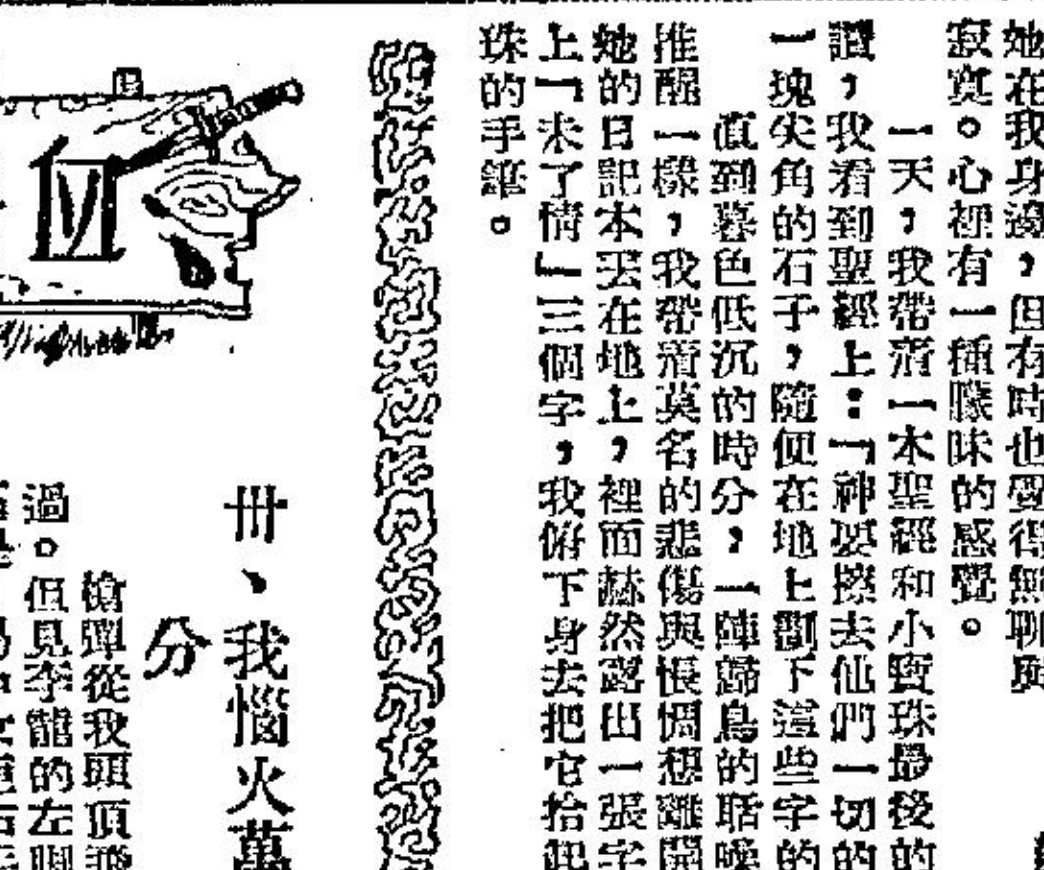 她在我身邊，但有時也覺得無聊與
寂寞。心裡有一種朦昧的感覺。
一天，我帶着一本聖經和小寶珠最後的
讀，我看到聖經上：「神要擦去他們一切的
一塊尖角的石子，隨便在地上劃下這些字的
直到暮色低沉的時分，一陣歸鳥的聒噪
推醒一樣，我帶着莫名的悲傷與悵惘想離開
她的日記本丟在地上，裡面赫然露出一張字
上「未了情」三個字，我俯下身去把它拾起
珠的手筆。
卅、我惱火萬
分
槍彈從我頭頂飛
過。但見李龍的左